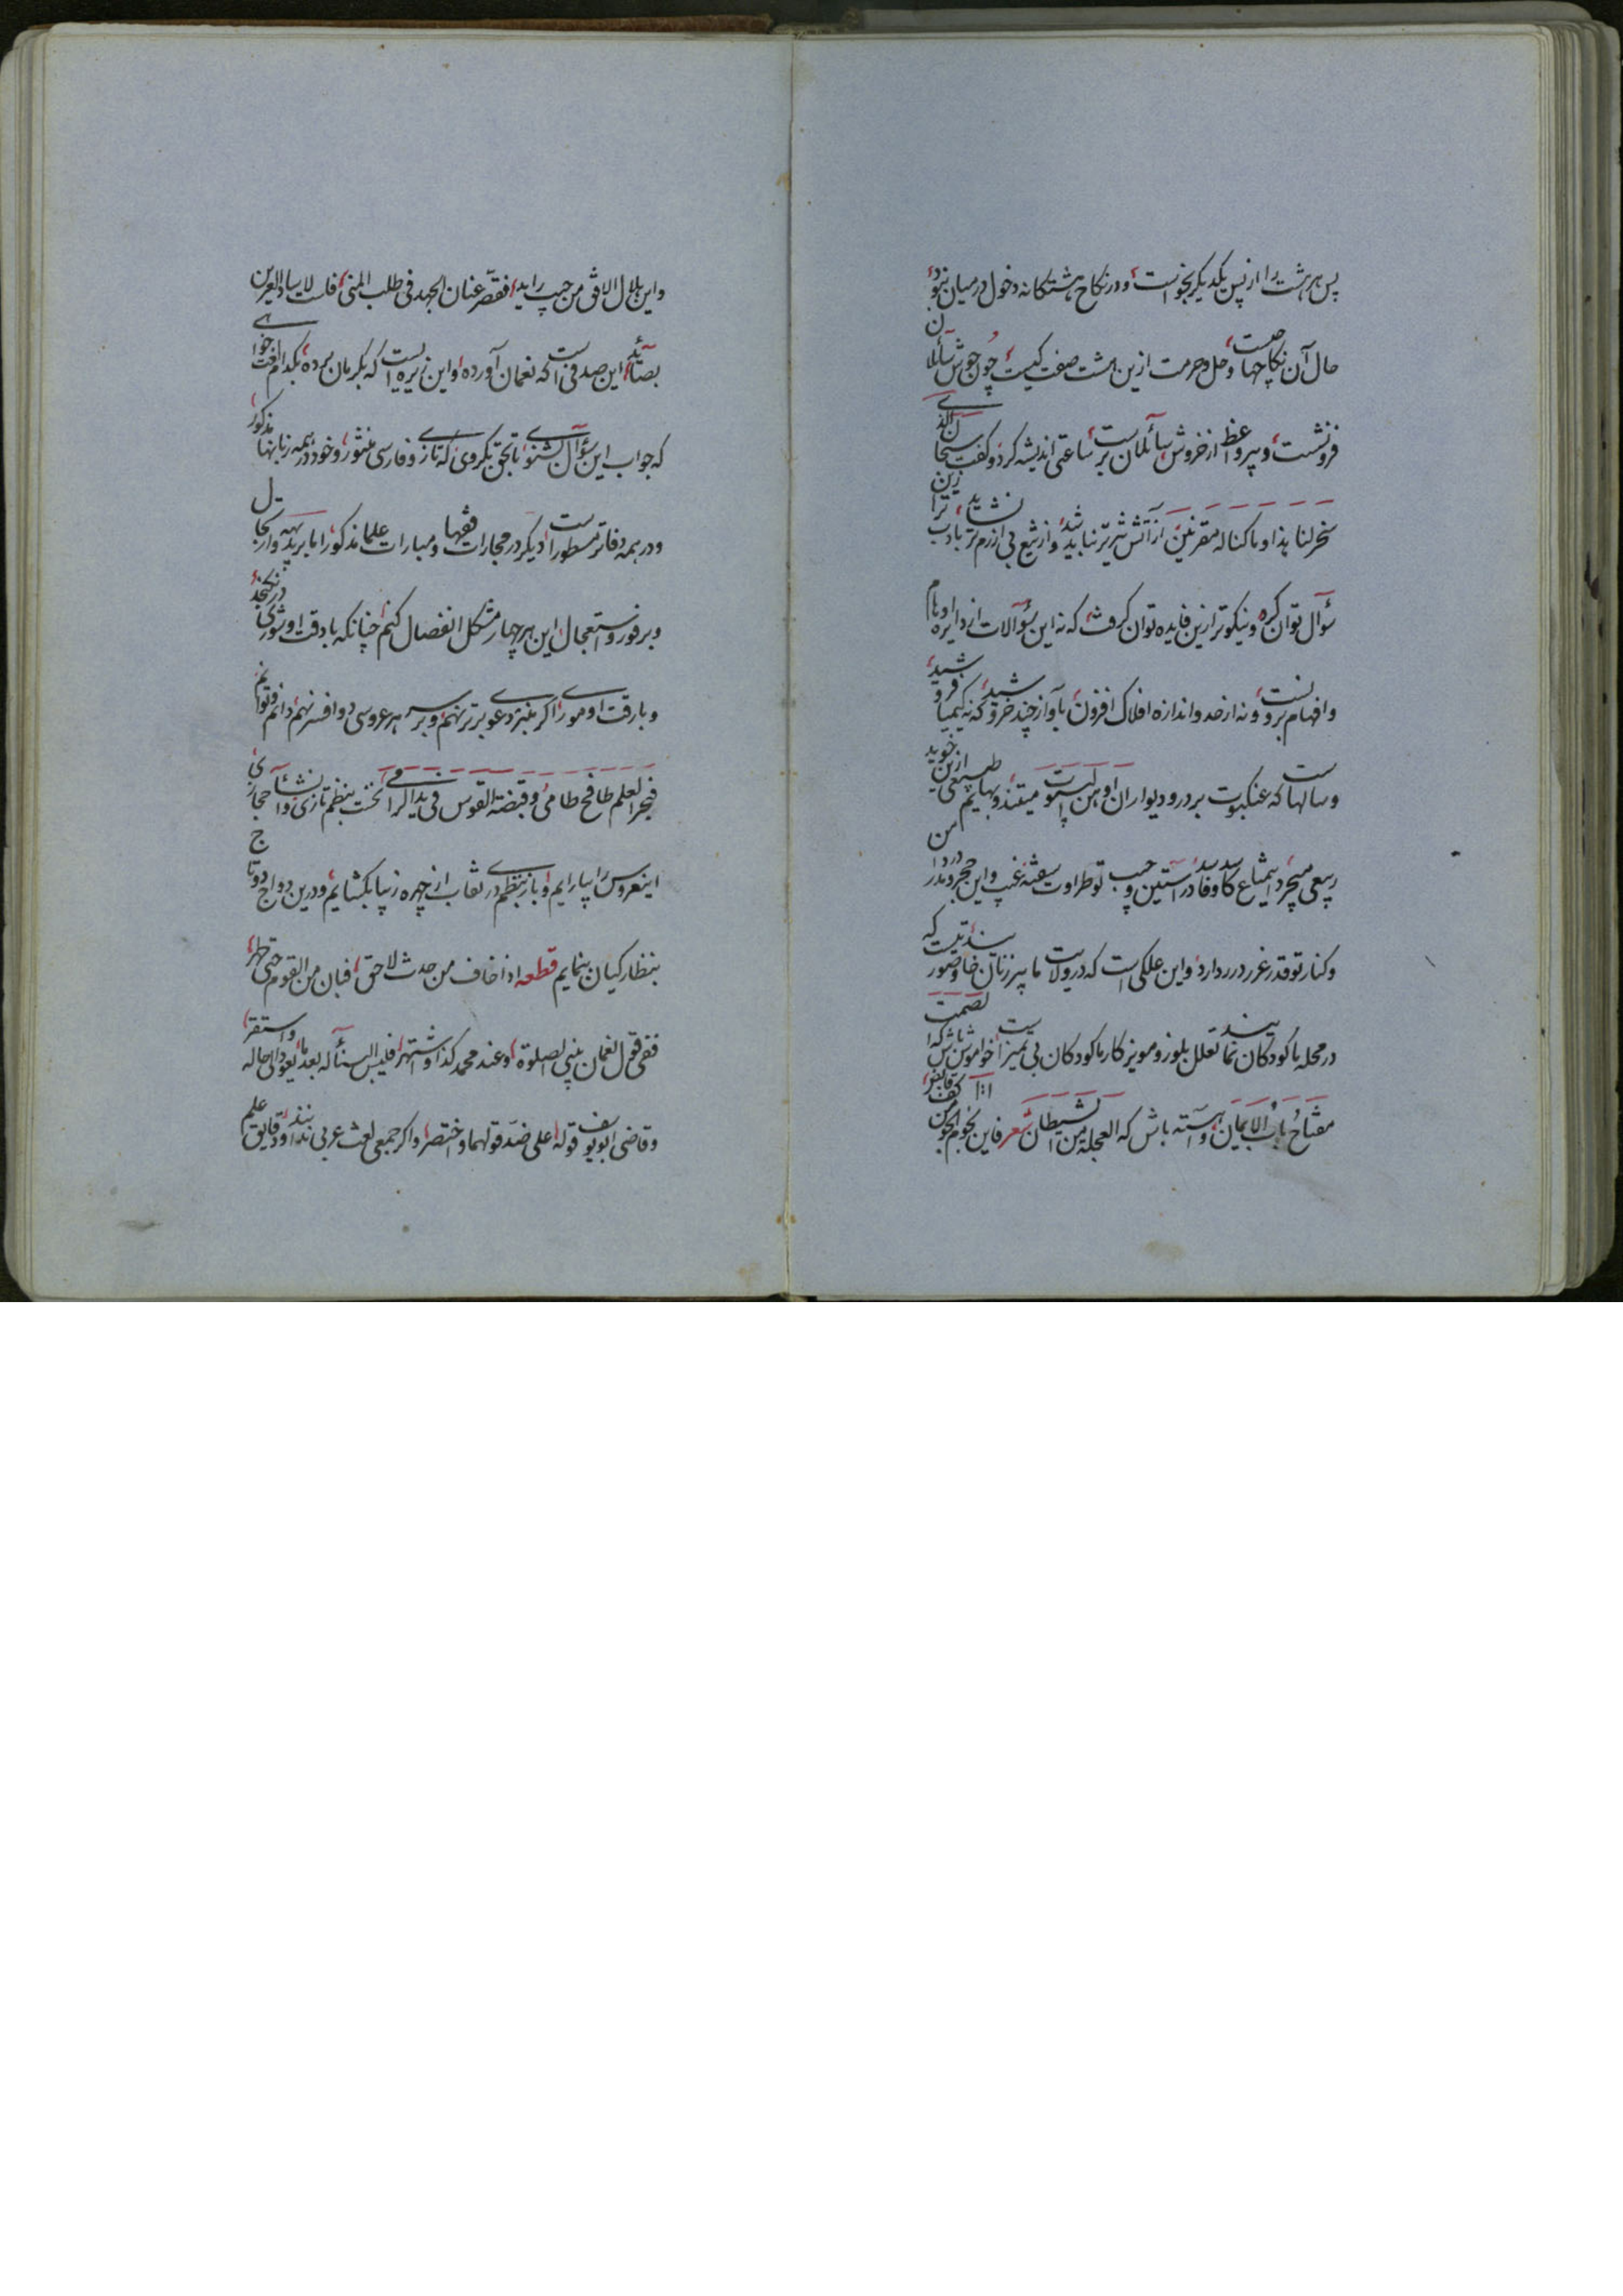 پس هر هشت را از پس یکدیگر بخواست و در نکاح هشتکانه دخول در میان نبود
حال آن نکاحها چیست و حل و حرمت ازین هشت صفت کیست چون جوش سائلان
فرو نشست و پیر واعظ از خروش سائلان برست ساعتی اندیشه کرد و کفت سبحان الذی
سخر لنا هذا و ما کنا له مقرنین از آتش تیزتر نباید شد و از تیغ بی آزرم تر نشاید ترا بادب ازین
سؤال توان کرد و نیکوتر ازین فایده توان کرفت که نه این سؤالات از دایره اوهام
و افهام بروnست و نه از حد و اندازه افلاک افزون بآواز چند خروشید که نه کیمیا فروشید
و سالهاست که عنکبوت بر در و دیوار ان اوهن البیوت میتند و بهایم طبیعی ازین خوید
ربیعی میچرد اسمتاع کاوفا در آستین و جیب تو طراوت سفته غیب و این حجر و مدر من
و کنار تو قدر غرر درر دارد و این علکی است که در ولایت ما پیرزنان خایند و تصور نیست که
در محله ما کودکان نمایند تعلل بلوز و مویز کار ما کودکان بی تمیز است خواموش باش که الصمت
مفتاح باب الایمان و آهسته باش که العجلة من الشیطان شعر فاین نجوم الجو من کف قابض
و این هلال الافق من جیب راید فقصر عنان الجهد فی طلب المنی فلست لایساد العرین
بصائد این صدفی است که نعمان آورده و این زیره ایست که بکرمان برده بکدام لغت خواهی
که جواب این سؤال بشنوی تا بحق بکروی که تازی و فارسی منثور و خود در همه زبانها مذکور
و در همه دفاتر مسطور است دیکر در مجارات فقها و مبارات علما مذکور اما بر بدیهه و ارتجال
و بر فور و استعجال این هر چهار مشکل انفصال کنم چنانکه با دقت او شوری درنکنجد
و با رقت او موری اکر منبر دعوی برتر نهم و بر سر هر عروسی دو افسر نهم دانم و توانم
فبحر العلم طافح طامی و قبضة القوس فی ید الرامی نخست بنظم تازی و انشاء حجازی
این عروس را بیارایم و باز بنظم دری نقاب از چهره زیبا بکشایم و درین دواج دوتا
بنظارکیان بنمایم قطعه اذا خاف من حدث لاحق فبان من القوم حتی طهر
ففی قول نعمان یبنی الصلوة و عند محمد کذا و اشتهر فلیس البناء له بعد ما یعود الی حاله و استقر
و قاضی ابو یوسف قوله علی ضد قولهما و اختصر و اکر جمعی لغت عربی ندانند و دقایق علم